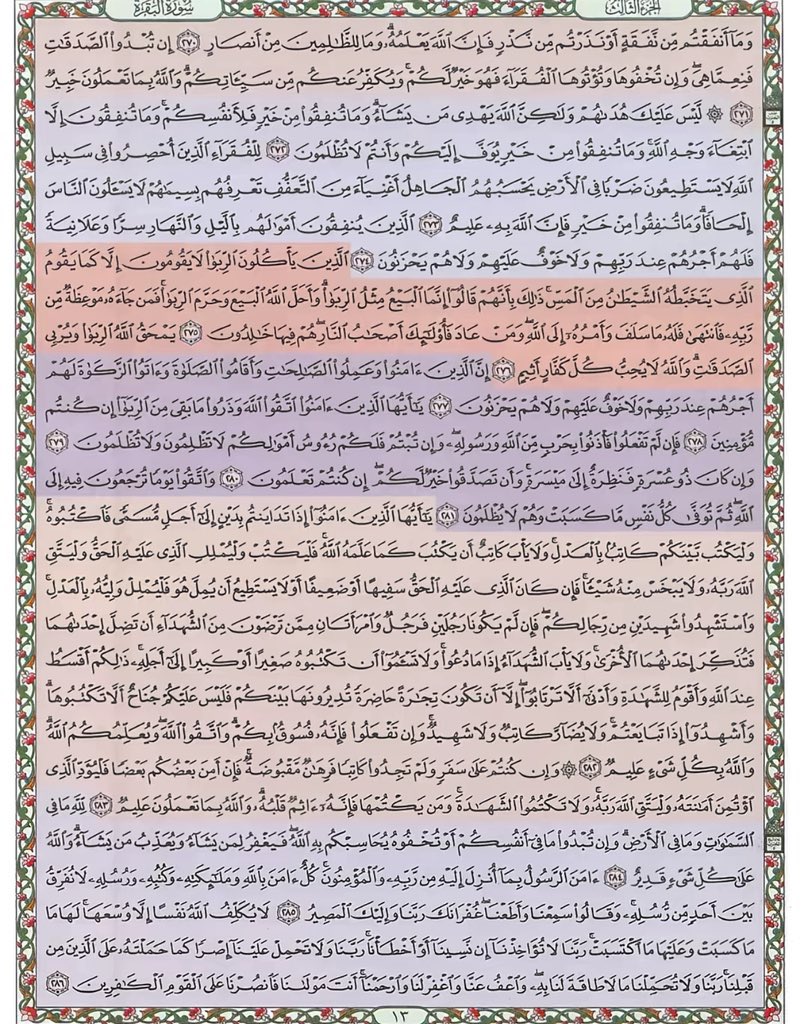 الجزء الثالث
سورة البقرة
وَمَآ أَنفَقْتُم مِّن نَّفَقَةٍ أَوْ نَذَرْتُم مِّن نَّذْرٍ فَإِنَّ ٱللَّهَ يَعْلَمُهُۥ وَمَا لِلظَّـٰلِمِينَ مِنْ أَنصَارٍ ٢٧٠ إِن تُبْدُوا۟ ٱلصَّدَقَـٰتِ
فَنِعِمَّا هِىَ وَإِن تُخْفُوهَا وَتُؤْتُوهَا ٱلْفُقَرَآءَ فَهُوَ خَيْرٌ لَّكُمْ وَيُكَفِّرُ عَنكُم مِّن سَيِّـَٔاتِكُمْ وَٱللَّهُ بِمَا تَعْمَلُونَ خَبِيرٌ
٢٧١ ۞ لَّيْسَ عَلَيْكَ هُدَىٰهُمْ وَلَـٰكِنَّ ٱللَّهَ يَهْدِى مَن يَشَآءُ وَمَا تُنفِقُوا۟ مِنْ خَيْرٍ فَلِأَنفُسِكُمْ وَمَا تُنفِقُونَ إِلَّا
ٱبْتِغَآءَ وَجْهِ ٱللَّهِ وَمَا تُنفِقُوا۟ مِنْ خَيْرٍ يُوَفَّ إِلَيْكُمْ وَأَنتُمْ لَا تُظْلَمُونَ ٢٧٢ لِلْفُقَرَآءِ ٱلَّذِينَ أُحْصِرُوا۟ فِى سَبِيلِ
ٱللَّهِ لَا يَسْتَطِيعُونَ ضَرْبًا فِى ٱلْأَرْضِ يَحْسَبُهُمُ ٱلْجَاهِلُ أَغْنِيَآءَ مِنَ ٱلتَّعَفُّفِ تَعْرِفُهُم بِسِيمَـٰهُمْ لَا يَسْـَٔلُونَ ٱلنَّاسَ
إِلْحَافًا وَمَا تُنفِقُوا۟ مِنْ خَيْرٍ فَإِنَّ ٱللَّهَ بِهِۦ عَلِيمٌ ٢٧٣ ٱلَّذِينَ يُنفِقُونَ أَمْوَٰلَهُم بِٱلَّيْلِ وَٱلنَّهَارِ سِرًّا وَعَلَانِيَةً
فَلَهُمْ أَجْرُهُمْ عِندَ رَبِّهِمْ وَلَا خَوْفٌ عَلَيْهِمْ وَلَا هُمْ يَحْزَنُونَ ٢٧٤ ٱلَّذِينَ يَأْكُلُونَ ٱلرِّبَوٰا۟ لَا يَقُومُونَ إِلَّا كَمَا يَقُومُ
ٱلَّذِى يَتَخَبَّطُهُ ٱلشَّيْطَـٰنُ مِنَ ٱلْمَسِّ ذَٰلِكَ بِأَنَّهُمْ قَالُوٓا۟ إِنَّمَا ٱلْبَيْعُ مِثْلُ ٱلرِّبَوٰا۟ وَأَحَلَّ ٱللَّهُ ٱلْبَيْعَ وَحَرَّمَ ٱلرِّبَوٰا۟ فَمَن جَآءَهُۥ مَوْعِظَةٌ مِّن
رَّبِّهِۦ فَٱنتَهَىٰ فَلَهُۥ مَا سَلَفَ وَأَمْرُهُۥٓ إِلَى ٱللَّهِ وَمَنْ عَادَ فَأُو۟لَـٰٓئِكَ أَصْحَـٰبُ ٱلنَّارِ هُمْ فِيهَا خَـٰلِدُونَ ٢٧٥ يَمْحَقُ ٱللَّهُ ٱلرِّبَوٰا۟ وَيُرْبِى
ٱلصَّدَقَـٰتِ وَٱللَّهُ لَا يُحِبُّ كُلَّ كَفَّارٍ أَثِيمٍ ٢٧٦ إِنَّ ٱلَّذِينَ ءَامَنُوا۟ وَعَمِلُوا۟ ٱلصَّـٰلِحَـٰتِ وَأَقَامُوا۟ ٱلصَّلَوٰةَ وَءَاتَوُا۟ ٱلزَّكَوٰةَ لَهُمْ
أَجْرُهُمْ عِندَ رَبِّهِمْ وَلَا خَوْفٌ عَلَيْهِمْ وَلَا هُمْ يَحْزَنُونَ ٢٧٧ يَـٰٓأَيُّهَا ٱلَّذِينَ ءَامَنُوا۟ ٱتَّقُوا۟ ٱللَّهَ وَذَرُوا۟ مَا بَقِىَ مِنَ ٱلرِّبَوٰٓا۟ إِن كُنتُم
مُّؤْمِنِينَ ٢٧٨ فَإِن لَّمْ تَفْعَلُوا۟ فَأْذَنُوا۟ بِحَرْبٍ مِّنَ ٱللَّهِ وَرَسُولِهِۦ وَإِن تُبْتُمْ فَلَكُمْ رُءُوسُ أَمْوَٰلِكُمْ لَا تَظْلِمُونَ وَلَا تُظْلَمُونَ ٢٧٩
وَإِن كَانَ ذُو عُسْرَةٍ فَنَظِرَةٌ إِلَىٰ مَيْسَرَةٍ وَأَن تَصَدَّقُوا۟ خَيْرٌ لَّكُمْ إِن كُنتُمْ تَعْلَمُونَ ٢٨٠ وَٱتَّقُوا۟ يَوْمًا تُرْجَعُونَ فِيهِ إِلَى
ٱللَّهِ ثُمَّ تُوَفَّىٰ كُلُّ نَفْسٍ مَّا كَسَبَتْ وَهُمْ لَا يُظْلَمُونَ ٢٨١ يَـٰٓأَيُّهَا ٱلَّذِينَ ءَامَنُوٓا۟ إِذَا تَدَايَنتُم بِدَيْنٍ إِلَىٰٓ أَجَلٍ مُّسَمًّى فَٱكْتُبُوهُ
وَلْيَكْتُب بَّيْنَكُمْ كَاتِبٌۢ بِٱلْعَدْلِ وَلَا يَأْبَ كَاتِبٌ أَن يَكْتُبَ كَمَا عَلَّمَهُ ٱللَّهُ فَلْيَكْتُبْ وَلْيُمْلِلِ ٱلَّذِى عَلَيْهِ ٱلْحَقُّ وَلْيَتَّقِ
ٱللَّهَ رَبَّهُۥ وَلَا يَبْخَسْ مِنْهُ شَيْـًٔا فَإِن كَانَ ٱلَّذِى عَلَيْهِ ٱلْحَقُّ سَفِيهًا أَوْ ضَعِيفًا أَوْ لَا يَسْتَطِيعُ أَن يُمِلَّ هُوَ فَلْيُمْلِلْ وَلِيُّهُۥ بِٱلْعَدْلِ
وَٱسْتَشْهِدُوا۟ شَهِيدَيْنِ مِن رِّجَالِكُمْ فَإِن لَّمْ يَكُونَا رَجُلَيْنِ فَرَجُلٌ وَٱمْرَأَتَانِ مِمَّن تَرْضَوْنَ مِنَ ٱلشُّهَدَآءِ أَن تَضِلَّ إِحْدَىٰهُمَا
فَتُذَكِّرَ إِحْدَىٰهُمَا ٱلْأُخْرَىٰ وَلَا يَأْبَ ٱلشُّهَدَآءُ إِذَا مَا دُعُوا۟ وَلَا تَسْـَٔمُوٓا۟ أَن تَكْتُبُوهُ صَغِيرًا أَوْ كَبِيرًا إِلَىٰٓ أَجَلِهِۦ ذَٰلِكُمْ أَقْسَطُ
عِندَ ٱللَّهِ وَأَقْوَمُ لِلشَّهَـٰدَةِ وَأَدْنَىٰٓ أَلَّا تَرْتَابُوٓا۟ إِلَّآ أَن تَكُونَ تِجَـٰرَةً حَاضِرَةً تُدِيرُونَهَا بَيْنَكُمْ فَلَيْسَ عَلَيْكُمْ جُنَاحٌ أَلَّا تَكْتُبُوهَا
وَأَشْهِدُوٓا۟ إِذَا تَبَايَعْتُمْ وَلَا يُضَآرَّ كَاتِبٌ وَلَا شَهِيدٌ وَإِن تَفْعَلُوا۟ فَإِنَّهُۥ فُسُوقٌۢ بِكُمْ وَٱتَّقُوا۟ ٱللَّهَ وَيُعَلِّمُكُمُ ٱللَّهُ
وَٱللَّهُ بِكُلِّ شَىْءٍ عَلِيمٌ ٢٨٢ ۞ وَإِن كُنتُمْ عَلَىٰ سَفَرٍ وَلَمْ تَجِدُوا۟ كَاتِبًا فَرِهَـٰنٌ مَّقْبُوضَةٌ فَإِنْ أَمِنَ بَعْضُكُم بَعْضًا فَلْيُؤَدِّ ٱلَّذِى
ٱؤْتُمِنَ أَمَـٰنَتَهُۥ وَلْيَتَّقِ ٱللَّهَ رَبَّهُۥ وَلَا تَكْتُمُوا۟ ٱلشَّهَـٰدَةَ وَمَن يَكْتُمْهَا فَإِنَّهُۥٓ ءَاثِمٌ قَلْبُهُۥ وَٱللَّهُ بِمَا تَعْمَلُونَ عَلِيمٌ ٢٨٣ لِّلَّهِ مَا فِى
ٱلسَّمَـٰوَٰتِ وَمَا فِى ٱلْأَرْضِ وَإِن تُبْدُوا۟ مَا فِىٓ أَنفُسِكُمْ أَوْ تُخْفُوهُ يُحَاسِبْكُم بِهِ ٱللَّهُ فَيَغْفِرُ لِمَن يَشَآءُ وَيُعَذِّبُ مَن يَشَآءُ وَٱللَّهُ
عَلَىٰ كُلِّ شَىْءٍ قَدِيرٌ ٢٨٤ ءَامَنَ ٱلرَّسُولُ بِمَآ أُنزِلَ إِلَيْهِ مِن رَّبِّهِۦ وَٱلْمُؤْمِنُونَ كُلٌّ ءَامَنَ بِٱللَّهِ وَمَلَـٰٓئِكَتِهِۦ وَكُتُبِهِۦ وَرُسُلِهِۦ لَا نُفَرِّقُ
بَيْنَ أَحَدٍ مِّن رُّسُلِهِۦ وَقَالُوا۟ سَمِعْنَا وَأَطَعْنَا غُفْرَانَكَ رَبَّنَا وَإِلَيْكَ ٱلْمَصِيرُ ٢٨٥ لَا يُكَلِّفُ ٱللَّهُ نَفْسًا إِلَّا وُسْعَهَا لَهَا مَا
كَسَبَتْ وَعَلَيْهَا مَا ٱكْتَسَبَتْ رَبَّنَا لَا تُؤَاخِذْنَآ إِن نَّسِينَآ أَوْ أَخْطَأْنَا رَبَّنَا وَلَا تَحْمِلْ عَلَيْنَآ إِصْرًا كَمَا حَمَلْتَهُۥ عَلَى ٱلَّذِينَ مِن
قَبْلِنَا رَبَّنَا وَلَا تُحَمِّلْنَا مَا لَا طَاقَةَ لَنَا بِهِۦ وَٱعْفُ عَنَّا وَٱغْفِرْ لَنَا وَٱرْحَمْنَآ أَنتَ مَوْلَىٰنَا فَٱنصُرْنَا عَلَى ٱلْقَوْمِ ٱلْكَـٰفِرِينَ ٢٨٦
١٣